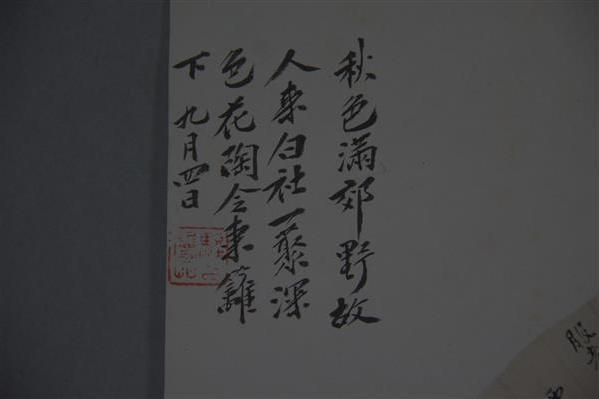 秋色滿郊野故
人來白社一聚深
色花陶令東籬
下 九月四日